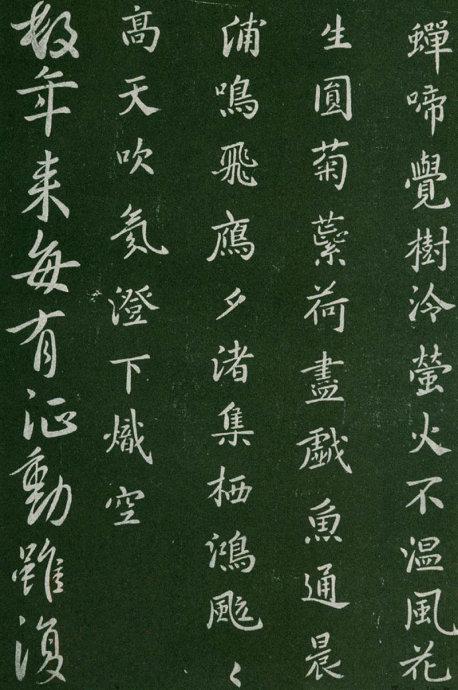 蟬啼覺樹冷螢火不溫風花
生圓菊蘂荷盡戲魚通晨
浦鳴飛鴈夕渚集栖鴻颯〻
高天吹氛澄下熾空
數年來每有征動雖復